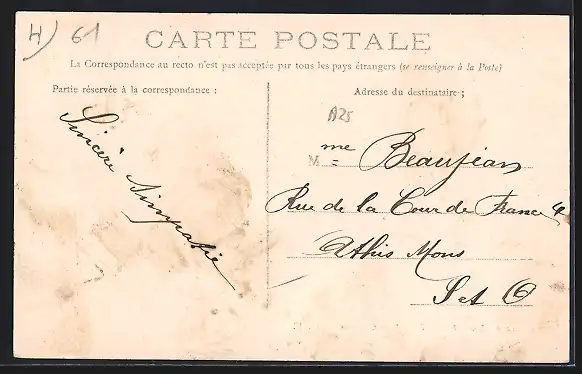 H) 61
CARTE POSTALE
La Correspondance au recto n'est pas acceptée par tous les pays étrangers (se renseigner à la Poste)
Partie réservée à la correspondance :
Adresse du destinataire :
A25
Sincère Simpatie
M me Beaujean
Rue de la Cour de France 4
Athis Mons
S et O